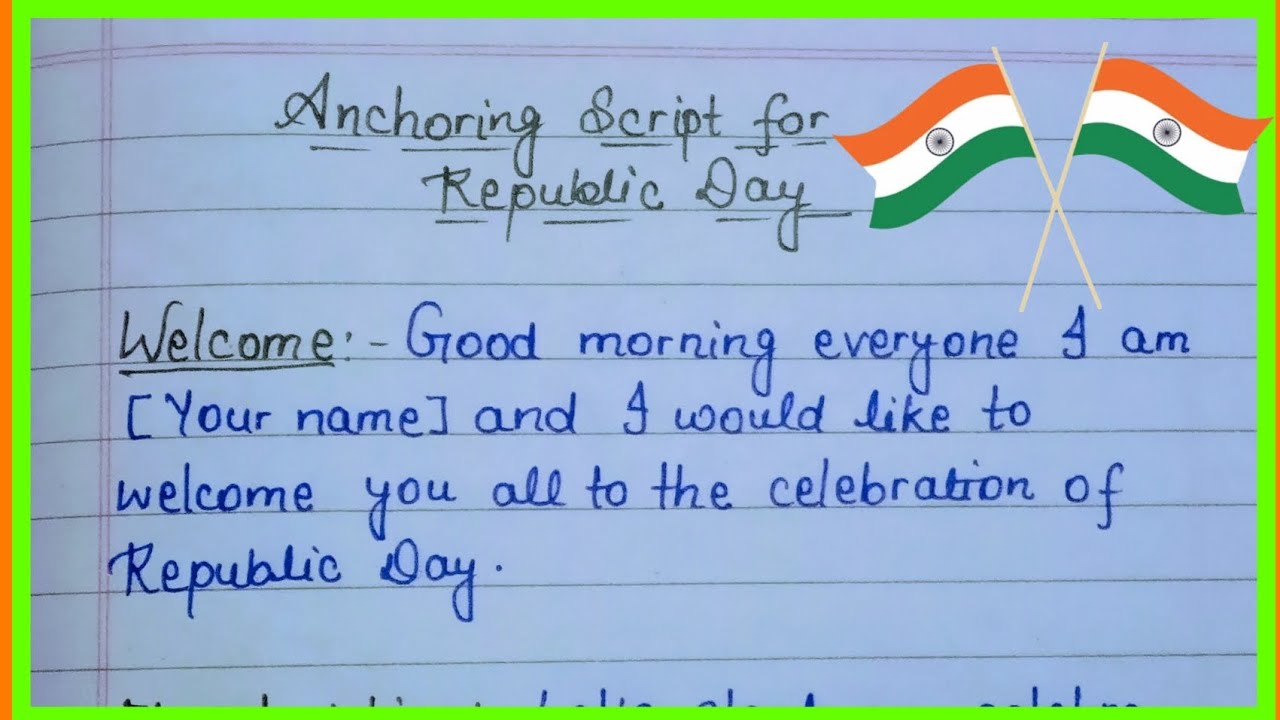 Anchoring Script for
Republic Day
Welcome:- Good morning everyone I am
[Your name] and I would like to
welcome you all to the celebration of
Republic Day.